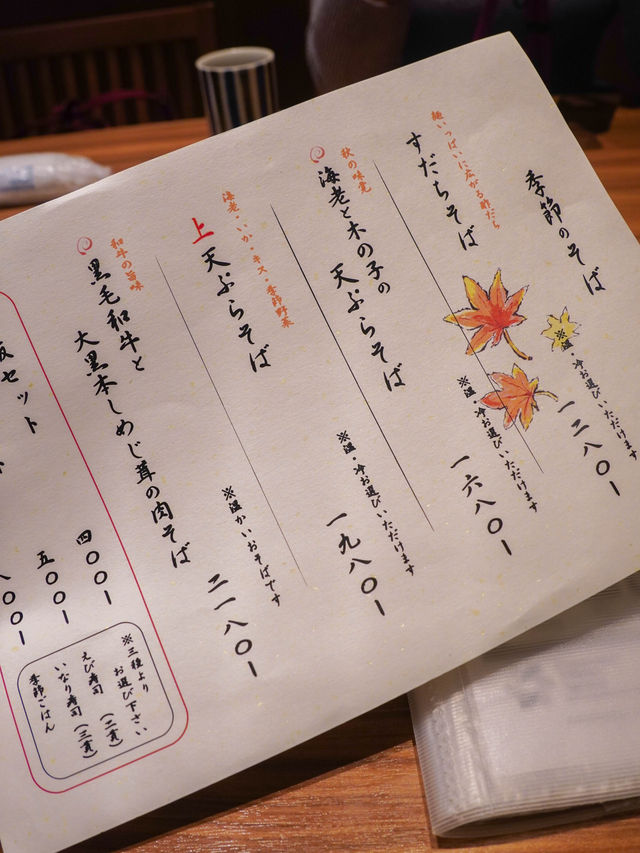 季節のそば
麺いっぱいに広がる酢だち
すだちそば
※温・冷お選びいただけます
一二八〇ー
秋の味覚
海老と木の子の
天ぷらそば
※温・冷お選びいただけます
一六八〇ー
海老・いか・キス・季節野菜
上天ぷらそば
※温・冷お選びいただけます
一九八〇ー
和牛の旨味
黒毛和牛と
大黒本しめじ茸の肉そば
※温かいおそばです
二一八〇ー
セット
四〇〇ー
五〇〇ー
〇〇ー
※三種より
お選び下さい
えび寿司（二貫）
いなり寿司（三貫）
季節ごはん